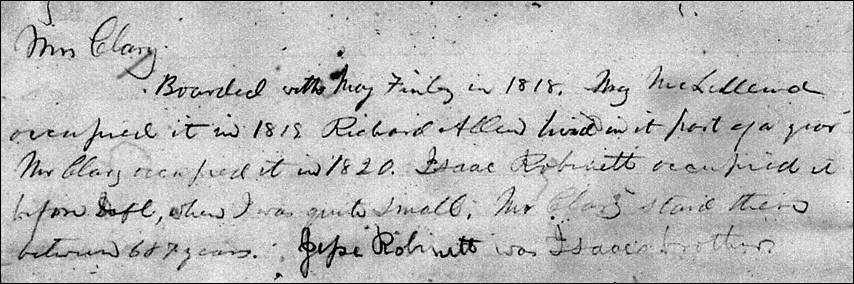 Mrs Clary.
Boarded with May Finley in 1818. May McLelland
occupied it in 1819 Richard Allen lived in it part of a year
Mr Clary occupied it in 1820. Isaac Robinett occupied it
before, when I was quite small. Mr. Clary staid there
between 6 & 7 years. Jesse Robinett was Isaac's brother